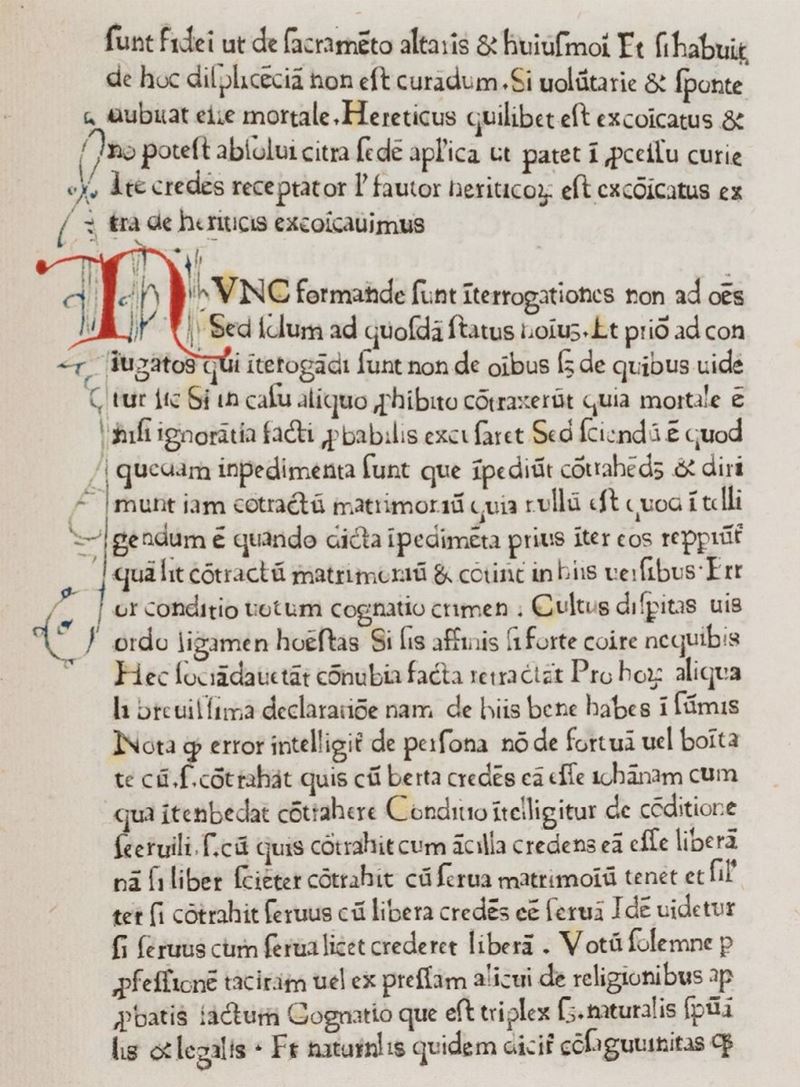 ſunt fidei ut de ſacramēto altaris & huiuſmoi Et ſi habuit
de hoc diſplicēciā non eſt curādum. Si uolūtarie & ſponte
dubitat eſſe mortale. Hereticus quilibet eſt excoīcatus &
nō poteſt abſolui citra ſedē apl'ica ut patet ī ꝓceſſu curie
Itē credēs receptator l' fautor heriticoꝝ eſt excōicatus ex
tra de heriticis excoīcauimus
NVNC formande ſunt īterrogationes non ad oēs
Sed ſolum ad quoſdā ſtatus hoīuꝫ. Et priō ad con
iugatos qui īterogādi ſunt non de oībus ſꝫ de quibus uide
tur ītē Si in caſu aliquo ꝓhibito cōtraxerūt quia mortale ē
niſi ignorātia facti ꝓbabilis excuſaret Sed ſciendū ē quod
quedam inpedimenta ſunt que īpediūt cōtrahēdꝫ & diri
munt iam cōtractū matrimoniū quia nullū eſt quod ītelli
gendum ē quando dicta īpedimēta prius īter eos reppriūt̄
quā ſit cōtractū matrimoniū & cōtinēt in hiis uerſibus Err
or conditio uotum cognatio crimen . Cultus diſpitas uis
ordo ligamen hoēſtas Si ſis affinis ſi forte coire nequibis
Hec ſociādauetāt cōnubia facta retractāt Pro hoꝝ aliqua
li breuiſſima declaratiōe nam de hiis bene habes ī ſūmis
Nota ꝙ error intelligit̄ de perſona nō de fortuā uel boīta
te cū.ſ.cōtrahāt quis cū berta credēs eā eſſe iohānam cum
qua ītenbedat cōtrahere Conditio ītelligitur de cōditione
ſeeruili.ſ.cū quis cōtrahit cum ācilla credens eā eſſe liberā
nā ſi liber ſciēter cōtrahit cū ſerua matrimoīū tenet et ſil'
ter ſi cōtrahit ſeruus cū libera credēs eē ſeruā Idē uidetur
ſi ſeruus cum ſerua licet crederet liberā . Votū ſolemne p
ꝓfeſſionē tacitam uel ex preſſam alicui de religionibus ap
ꝓbatis factum Cognatio que eſt triplex ſꝫ. naturalis ſpūa
lis & legalis . Et naturalis quidem dicit̄ cōſaguuinitas ꝙ